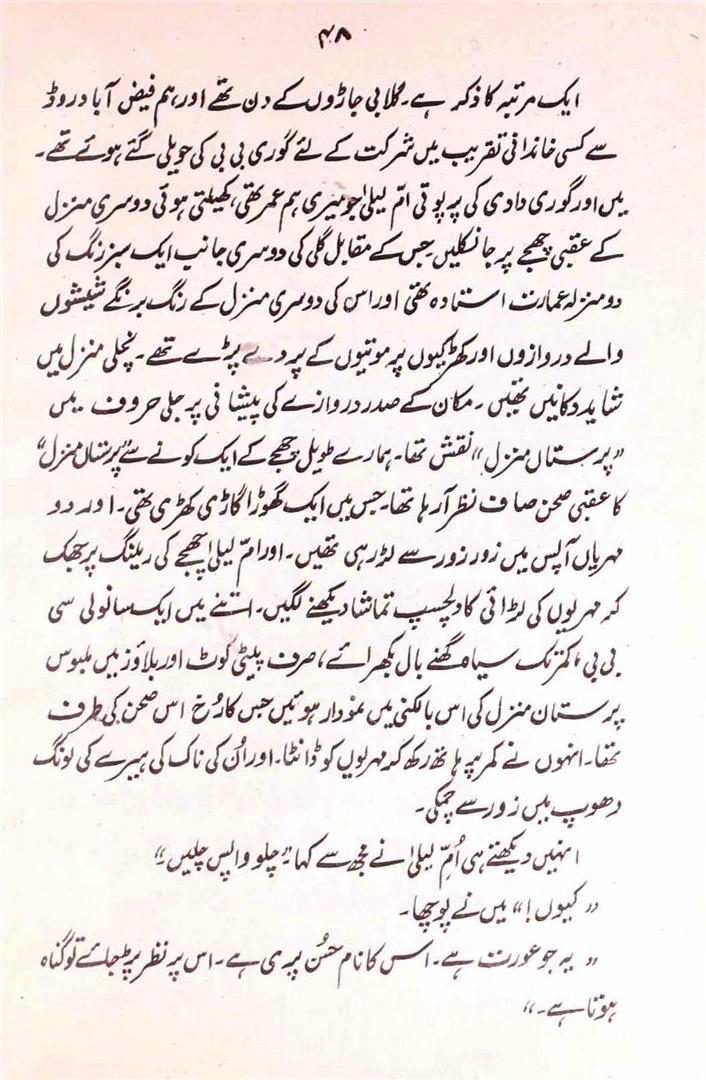 ۴۸
ایک مرتبہ کا ذکر ہے۔ گلابی جاڑوں کے دن تھے اور ہم فیض آباد روڈ
سے کسی خاندانی تقریب میں شرکت کے لئے گوری بی بی کی حویلی گئے ہوئے تھے۔
میں اور گوری دادی کی پر پوتی امّ لیلیٰ جو میری ہم عمر تھی، کھیلتی ہوئی دوسری منزل
کے عقبی چھجے پر جا نکلیں جس کے مقابل گلی کی دوسری جانب ایک سبز رنگ کی
دو منزلہ عمارت استادہ تھی اور اس کی دوسری منزل کے رنگ برنگے شیشوں
والے دروازوں اور کھڑکیوں پر موتیوں کے پردے پڑے تھے۔ نچلی منزل میں
شاید دکانیں تھیں۔ مکان کے صدر دروازے کی پیشانی پر جلی حروف میں
”پرستان منزل“ نقش تھا۔ ہمارے طویل چھجے کے ایک کونے سے ”پرستان منزل“
کا عقبی صحن صاف نظر آ رہا تھا۔ جس میں ایک گھوڑا گاڑی کھڑی تھی۔ اور دو
مہریاں آپس میں زور زور سے لڑ رہی تھیں۔ اور امّ لیلیٰ چھجے کی ریلنگ پر جھک
کر مہریوں کی لڑائی کا دلچسپ تماشا دیکھنے لگیں۔ اتنے میں ایک سانولی سی
بی بی، کمر تک سیاہ گھنے بال بکھرائے، صرف پیٹی کوٹ اور بلاؤز میں ملبوس
پرستان منزل کی اس بالکنی میں نمودار ہوئیں جس کا رُخ اس صحن کی طرف
تھا۔ انہوں نے کمر پر ہاتھ رکھ کر مہریوں کو ڈانٹا۔ اور اُن کی ناک کی ہیرے کی لونگ
دھوپ میں زور سے چمکی۔
انہیں دیکھتے ہی اُمّ لیلیٰ نے مجھ سے کہا ”چلو واپس چلیں۔“
”کیوں!“ میں نے پوچھا۔
”یہ جو عورت ہے۔ اس کا نام حسُن پری ہے۔ اس پر نظر پڑ جائے تو گناہ
ہوتا ہے۔“